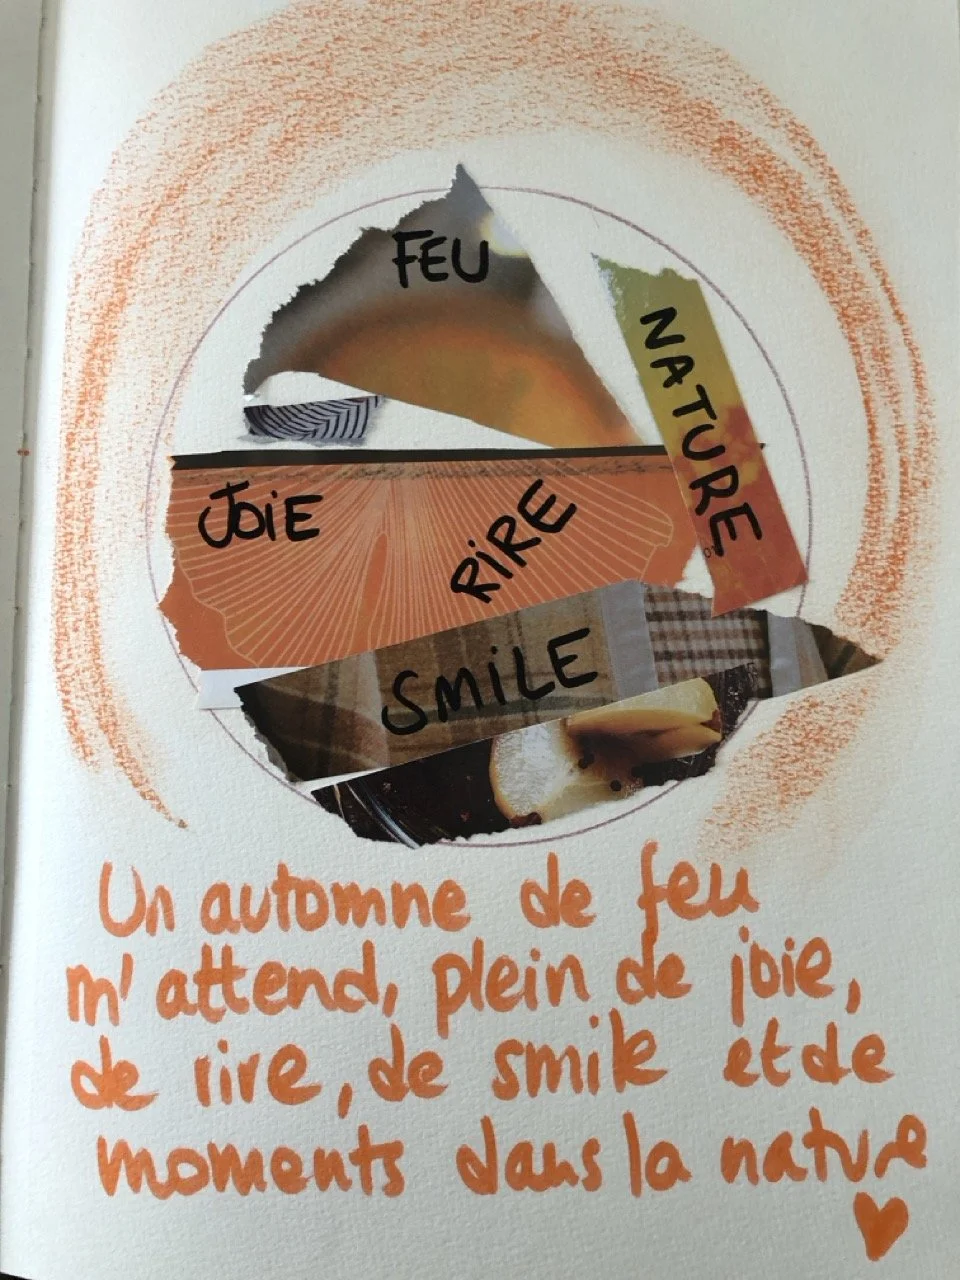 FEU
NATURE
JOIE
RIRE
SMILE
Un automne de feu
m'attend, plein de joie,
de rire, de smile et de
moments dans la nature